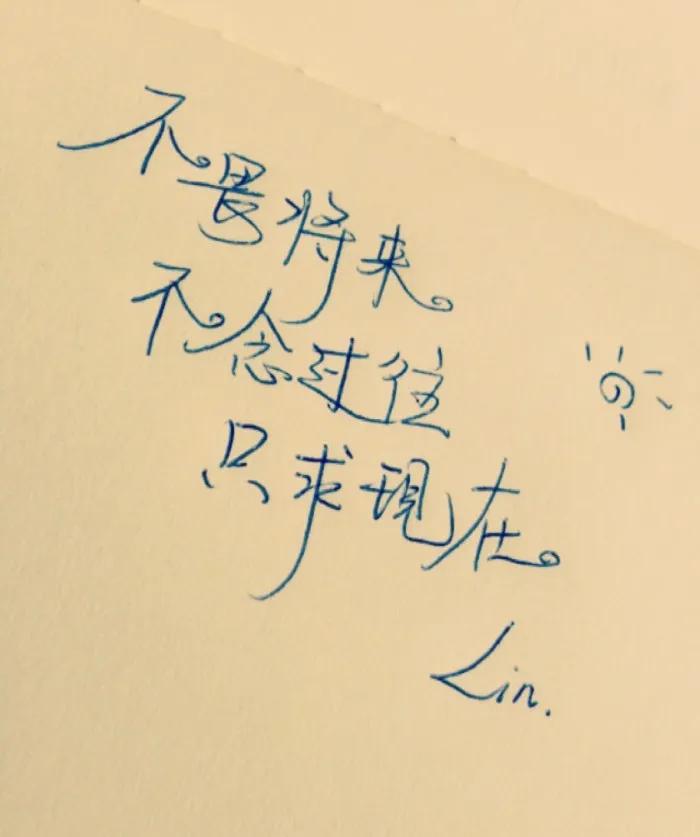 不畏将来
不念过往
只求现在
Lin.